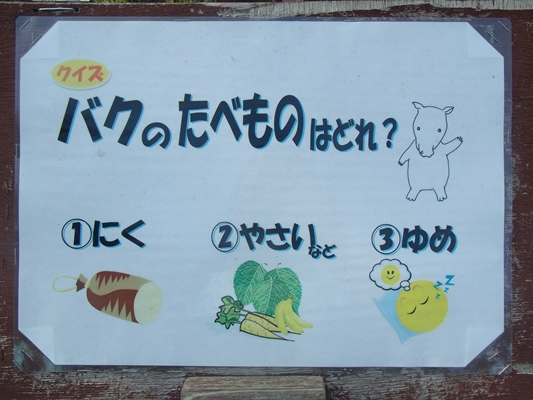 クイズ
バクのたべものはどれ？
①にく ②やさいなど ③ゆめ
zzz